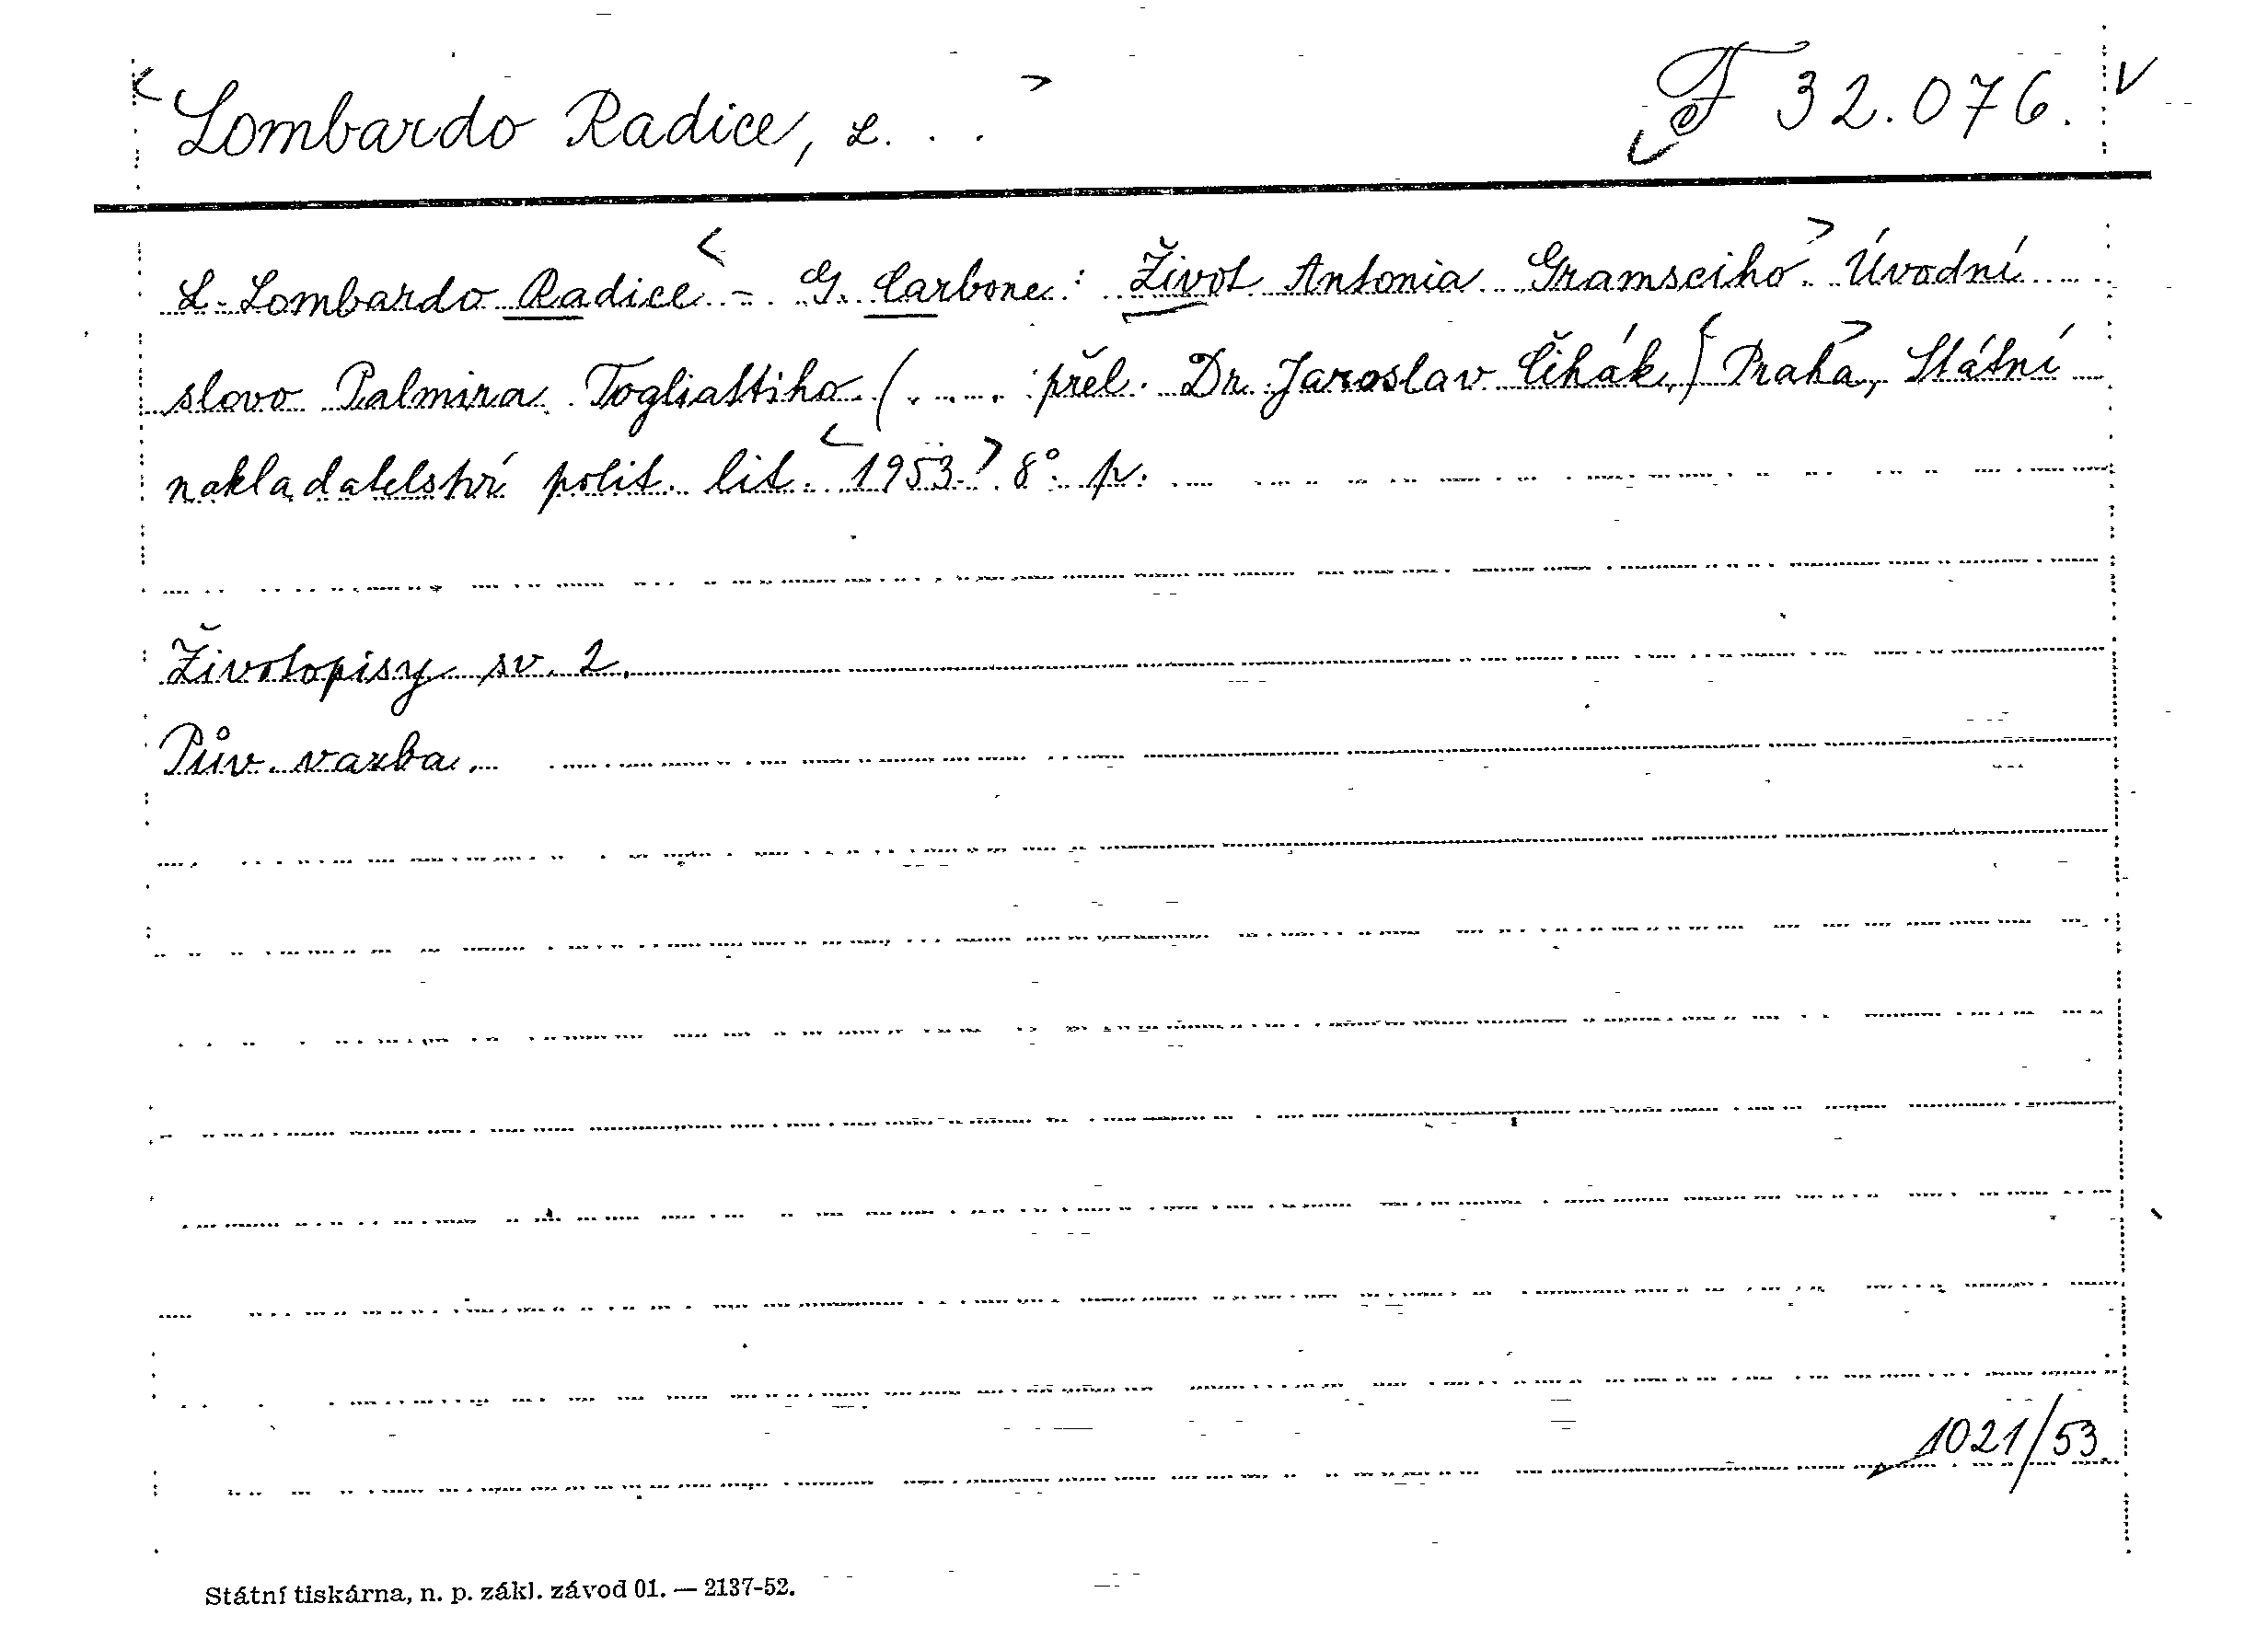 Lombardo Radice, L. . . F 32.076.
L. Lombardo Radice - G. Carbone: Život Antonia Gramsciho. Úvodní
slovo Palmira Togliattiho. (. . . přel. Dr. Jaroslav Čihák.) Praha, Státní
nakladatelství polit. lit. 1953. 8°. p.
Životopisy sv. 2.
Pův. vazba.
1021/53
Státní tiskárna, n. p. zákl. závod 01. — 2137-52.